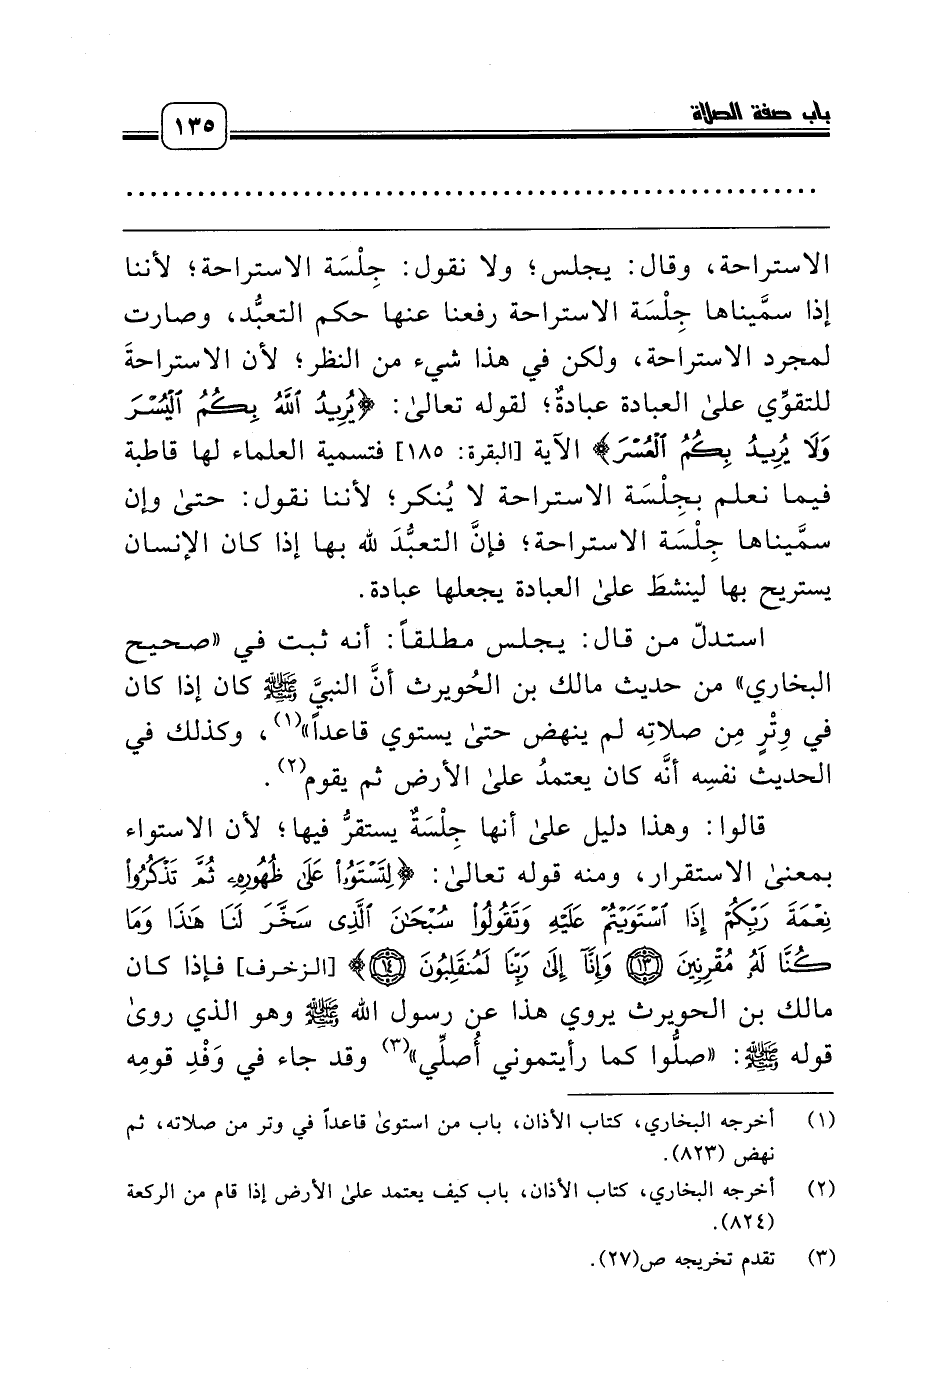 باب صفة الصلاة
١٣٥
الاستراحة، وقال: يجلس؛ ولا نقول: جِلْسَة الاستراحة؛ لأننا
إذا سمَّيناها جِلْسَة الاستراحة رفعنا عنها حكم التعبُّد، وصارت
لمجرد الاستراحة، ولكن في هذا شيء من النظر؛ لأن الاستراحةَ
للتقوِّي علىٰ العبادة عبادةٌ؛ لقوله تعالىٰ: ﴿يُرِيدُ ٱللَّهُ بِكُمُ ٱلْيُسْرَ
وَلَا يُرِيدُ بِكُمُ ٱلْعُسْرَ﴾ الآية [البقرة: ١٨٥] فتسمية العلماء لها قاطبة
فيما نعلم بجِلْسَة الاستراحة لا يُنكر؛ لأننا نقول: حتىٰ وإن
سمَّيناها جِلْسَة الاستراحة؛ فإنَّ التعبُّدَ لله بها إذا كان الإنسان
يستريح بها لينشطَ علىٰ العبادة يجعلها عبادة.
استدلّ من قال: يجلس مطلقاً: أنه ثبت في «صحيح
البخاري» من حديث مالك بن الحُويرث أنَّ النبيَّ ﷺ كان إذا كان
في وِتْرٍ مِن صلاتِه لم ينهض حتىٰ يستوي قاعداً»(١)، وكذلك في
الحديث نفسِه أنَّه كان يعتمدُ علىٰ الأرض ثم يقوم(٢).
قالوا: وهذا دليل علىٰ أنها جِلْسَةٌ يستقرُّ فيها؛ لأن الاستواء
بمعنىٰ الاستقرار، ومنه قوله تعالىٰ: ﴿لِتَسْتَوُۥا۟ عَلَىٰ ظُهُورِهِۦ ثُمَّ تَذْكُرُوا۟
نِعْمَةَ رَبِّكُمْ إِذَا ٱسْتَوَيْتُمْ عَلَيْهِ وَتَقُولُوا۟ سُبْحَـٰنَ ٱلَّذِى سَخَّرَ لَنَا هَـٰذَا وَمَا
كُنَّا لَهُۥ مُقْرِنِينَ ١٣ وَإِنَّآ إِلَىٰ رَبِّنَا لَمُنقَلِبُونَ ١٤﴾ [الزخرف] فإذا كان
مالك بن الحويرث يروي هذا عن رسول الله ﷺ وهو الذي روىٰ
قوله ﷺ: «صلُّوا كما رأيتموني أُصلِّي»(٣) وقد جاء في وَفْدِ قومِه
(١) أخرجه البخاري، كتاب الأذان، باب من استوىٰ قاعداً في وتر من صلاته، ثم
نهض (٨٢٣).
(٢) أخرجه البخاري، كتاب الأذان، باب كيف يعتمد علىٰ الأرض إذا قام من الركعة
(٨٢٤).
(٣) تقدم تخريجه ص(٢٧).